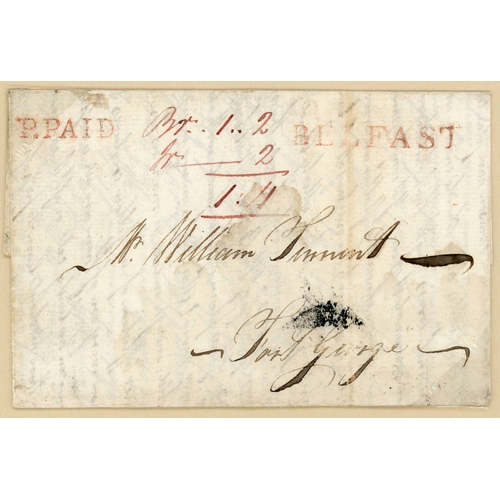 P.PAID
Br. 1..2
Ir — 2
1:4
BELFAST
Mr. William Tennent
Fort George